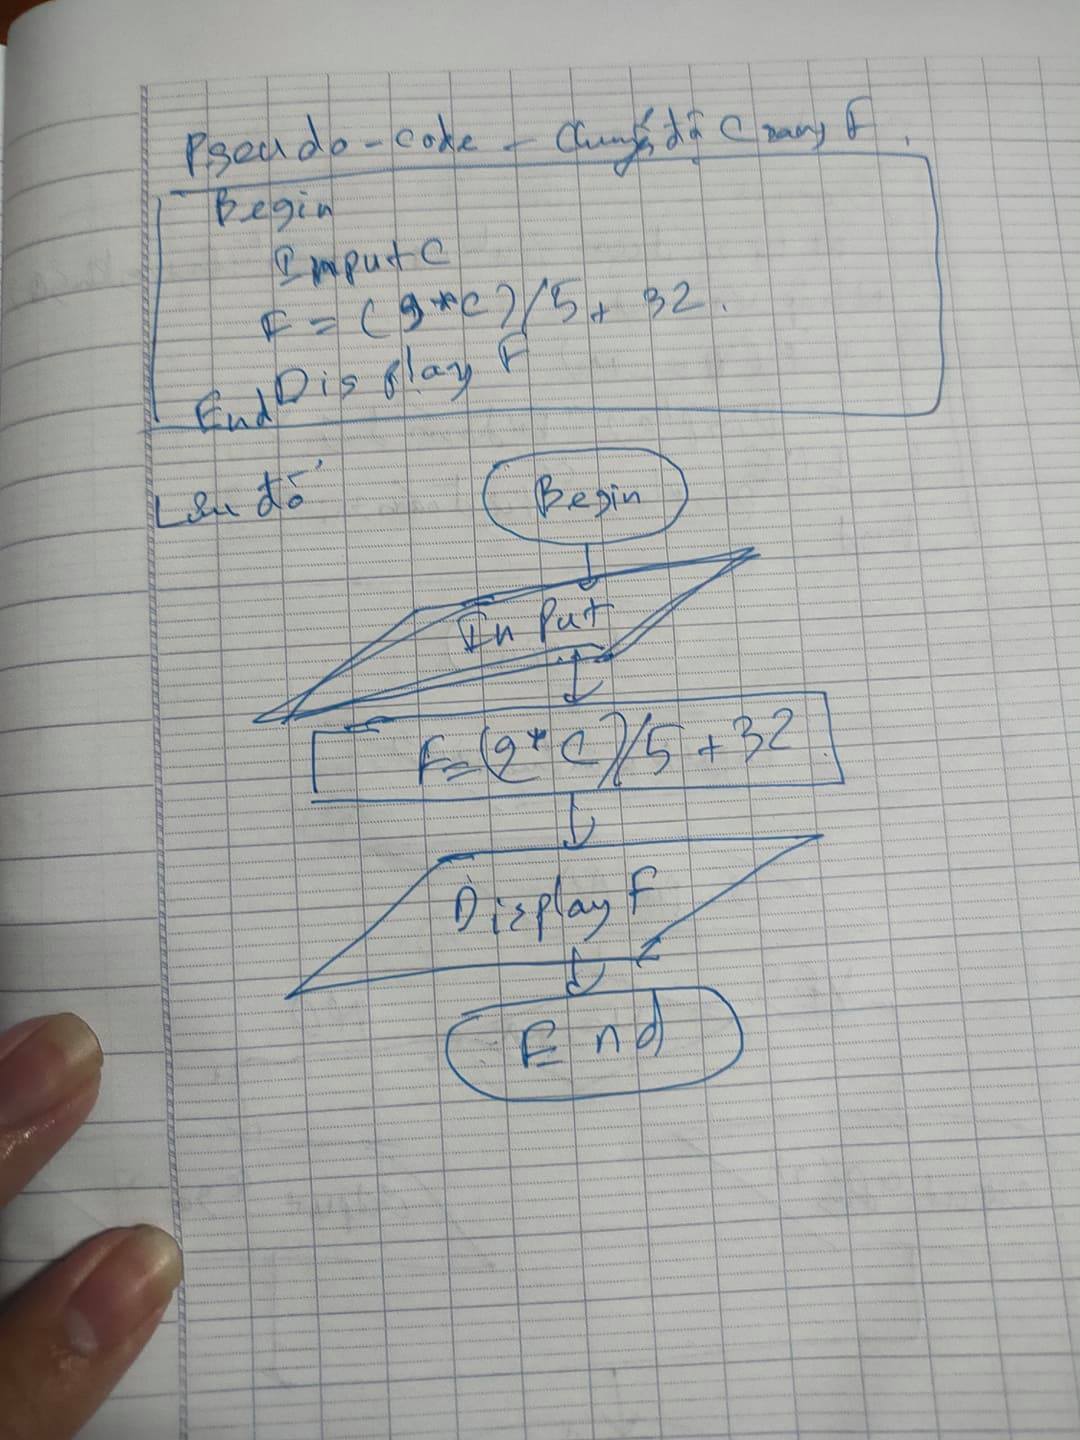 Pseudo-code - Chuyển đổi C sang F.
Begin
Input C
F = (9*C)/5 + 32.
Display F
End
Lưu đồ
Begin
Input
F=(9*C)/5 + 32
Display F
End